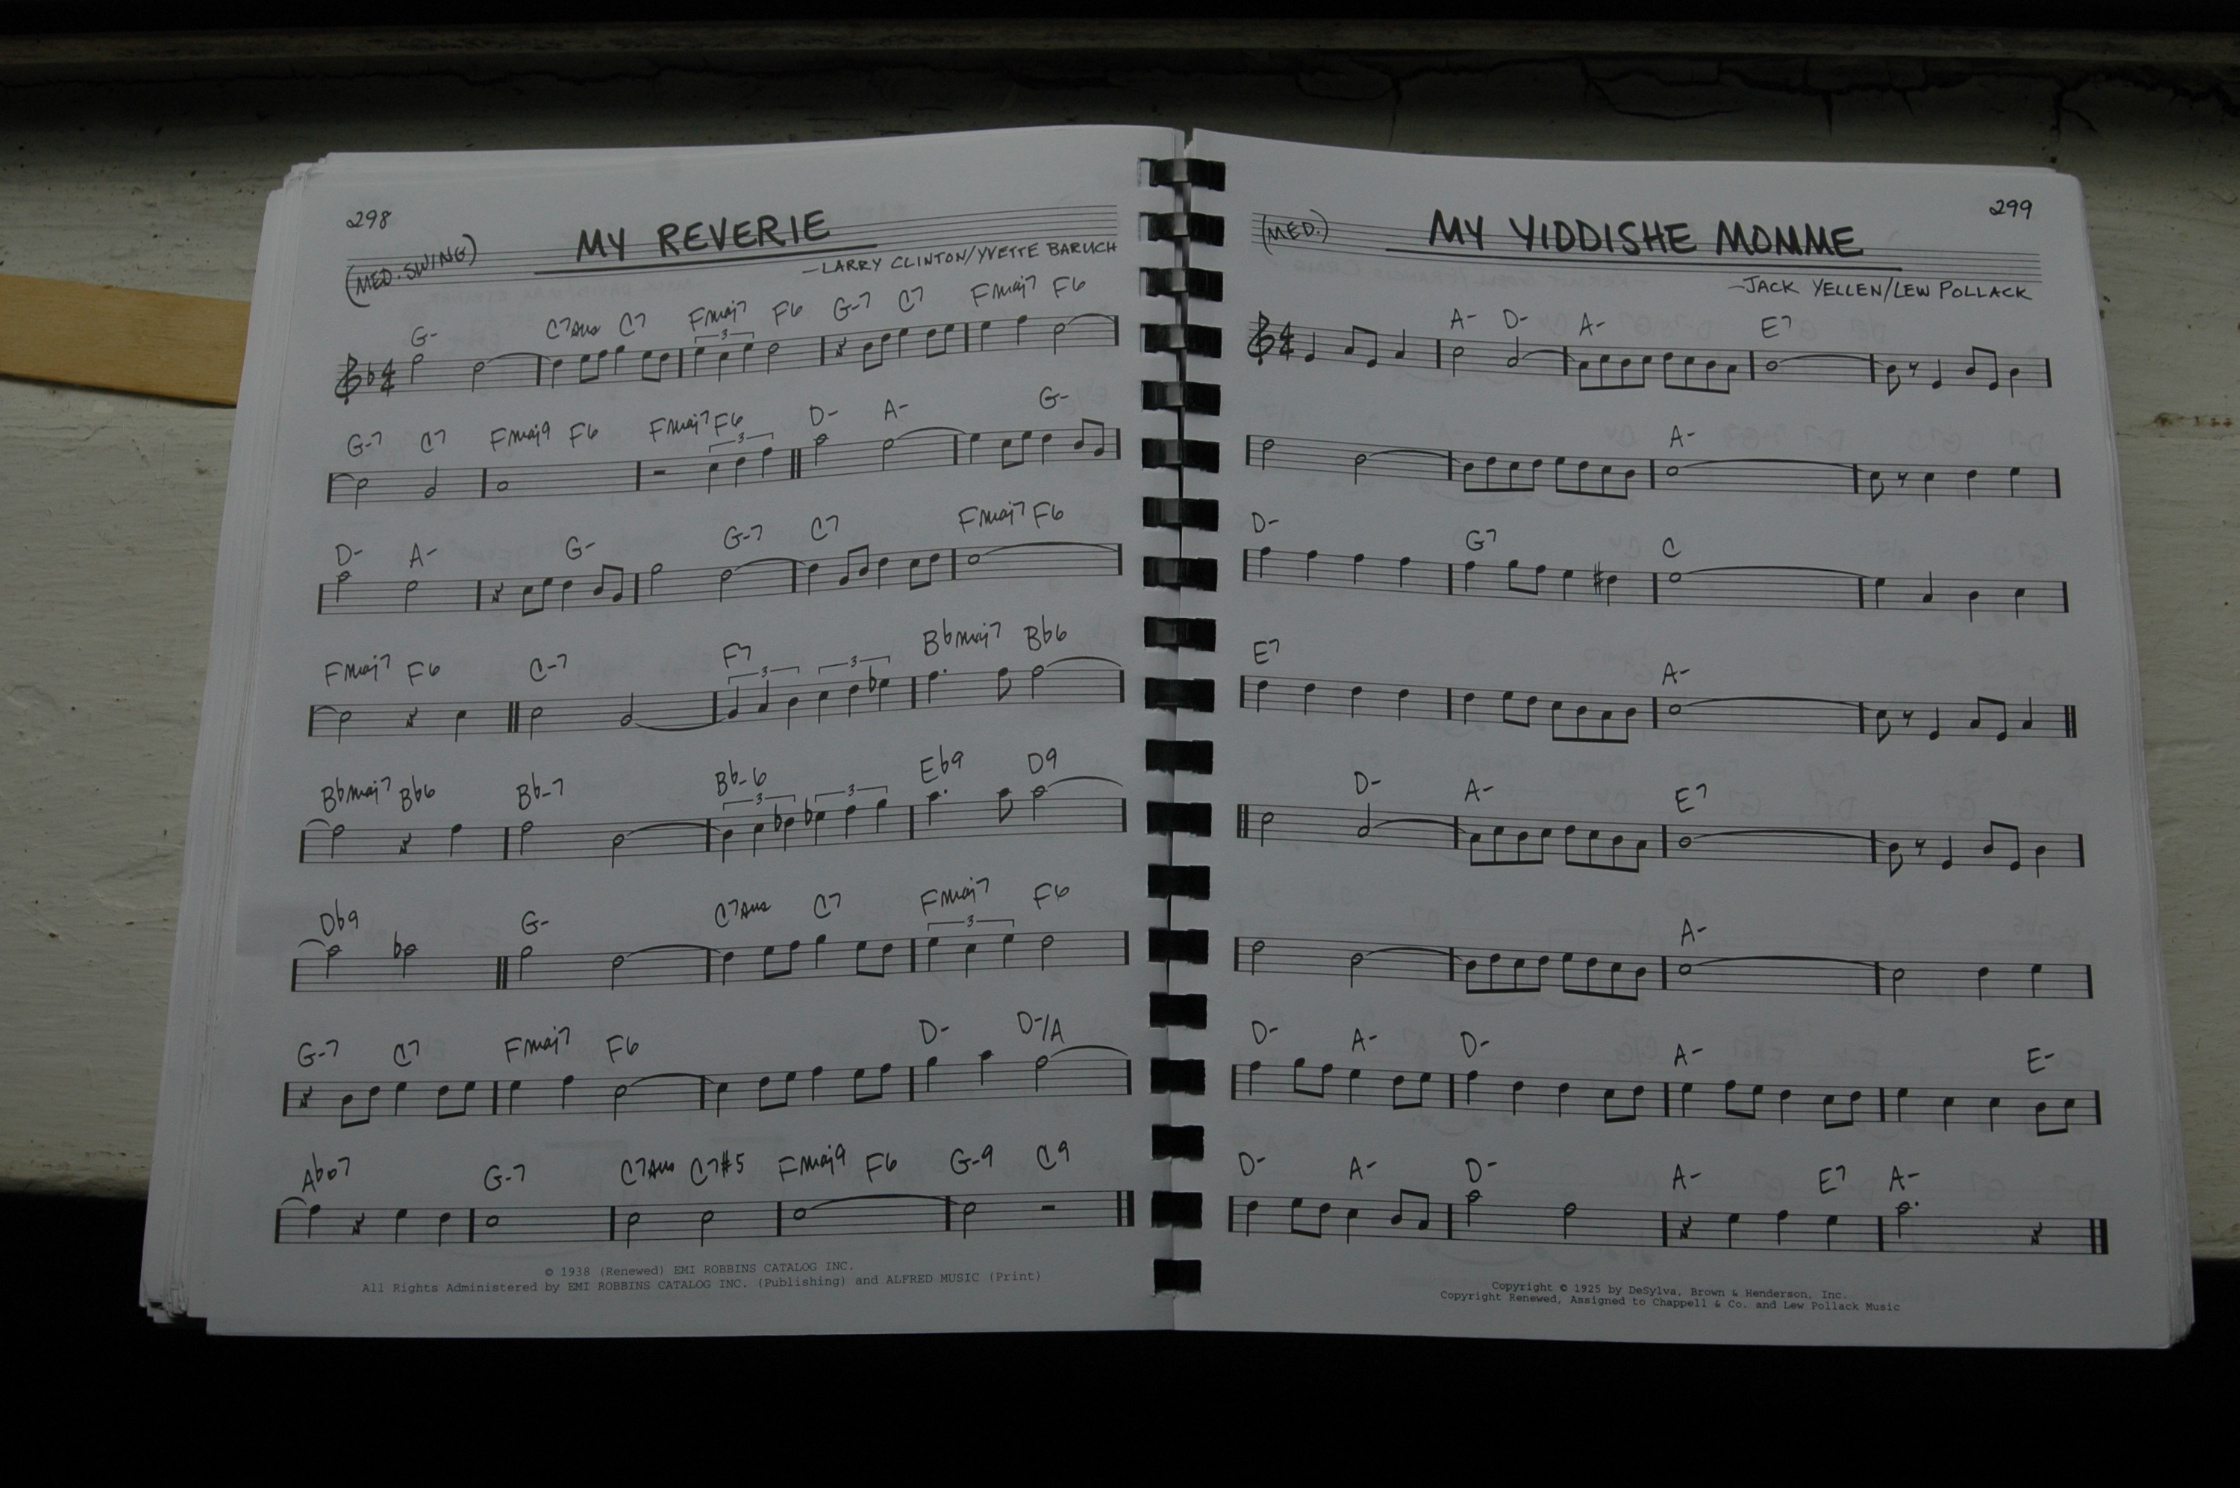 298
MY REVERIE
(MED. SWING)
-LARRY CLINTON/YVETTE BARUCH
G- C7sus C7 Fmaj7 F6 G-7 C7 Fmaj7 F6
3
G-7 C7 Fmaj9 F6 Fmaj7 F6 D- A- G-
3
D- A- G- G-7 C7 Fmaj7 F6
Fmaj7 F6 C-7 F7 Bbmaj7 Bb6
3 3
Bbmaj7 Bb6 Bb-7 Bb-6 Eb9 D9
3 3
Db9 G- C7sus C7 Fmaj7 F6
3
G-7 C7 Fmaj7 F6 D- D-/A
Abo7 G-7 C7sus C7#5 Fmaj9 F6 G-9 C9
© 1938 (Renewed) EMI ROBBINS CATALOG INC.
All Rights Administered by EMI ROBBINS CATALOG INC. (Publishing) and ALFRED MUSIC (Print)
299
MY YIDDISHE MOMME
(MED.)
-JACK YELLEN/LEW POLLACK
A- D- A- E7
A-
D- G7 C
E7 A-
D- A- E7
A-
D- A- D- A- E-
D- A- D- A- E7 A-
Copyright © 1925 by DeSylva, Brown & Henderson, Inc.
Copyright Renewed, Assigned to Chappell & Co. and Lew Pollack Music